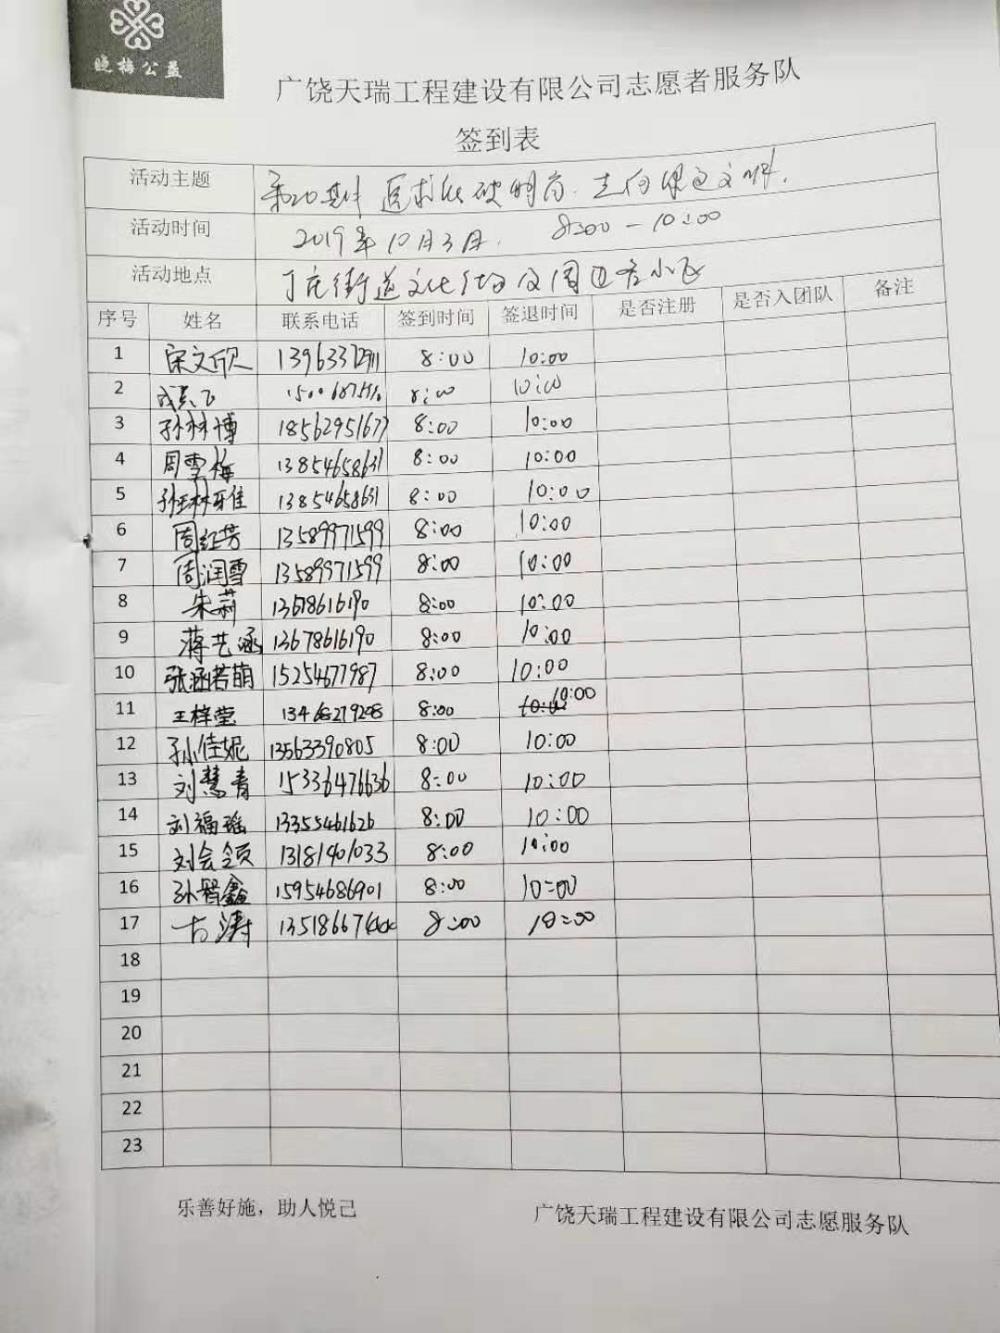 晓梅公益
广饶天瑞工程建设有限公司志愿者服务队
签到表
活动主题 第20期
活动时间 2019年10月3日. 8:00-10:00
活动地点 丁庄街道文化 及周边
序号 姓名 联系电话 签到时间 签退时间 是否注册 是否入团队 备注
1 宋文欣 8:00 10:00
2 8:00 10:00
3 孙林博 18562951677 8:00 10:00
4 周雪梅 13854658631 8:00 10:00
5 13854658631 8:00 10:00
6 周红芳 13589971599 8:00 10:00
7 周润雪 13589971599 8:00 10:00
8 朱莉 13678616190 8:00 10:00
9 蒋艺涵 13678616190 8:00 10:00
10 张涵若萌 15254677987 8:00 10:00
11 王梓莹 8:00 10:00
12 孙佳妮 13563390805 8:00 10:00
13 刘慧青 15336476636 8:00 10:00
14 刘福瑶 13355461626 8:00 10:00
15 刘会领 8:00 10:00
16 孙智鑫 15954686901 8:00 10:00
17 古涛 8:00 10:00
18
19
20
21
22
23
乐善好施，助人悦己
广饶天瑞工程建设有限公司志愿服务队